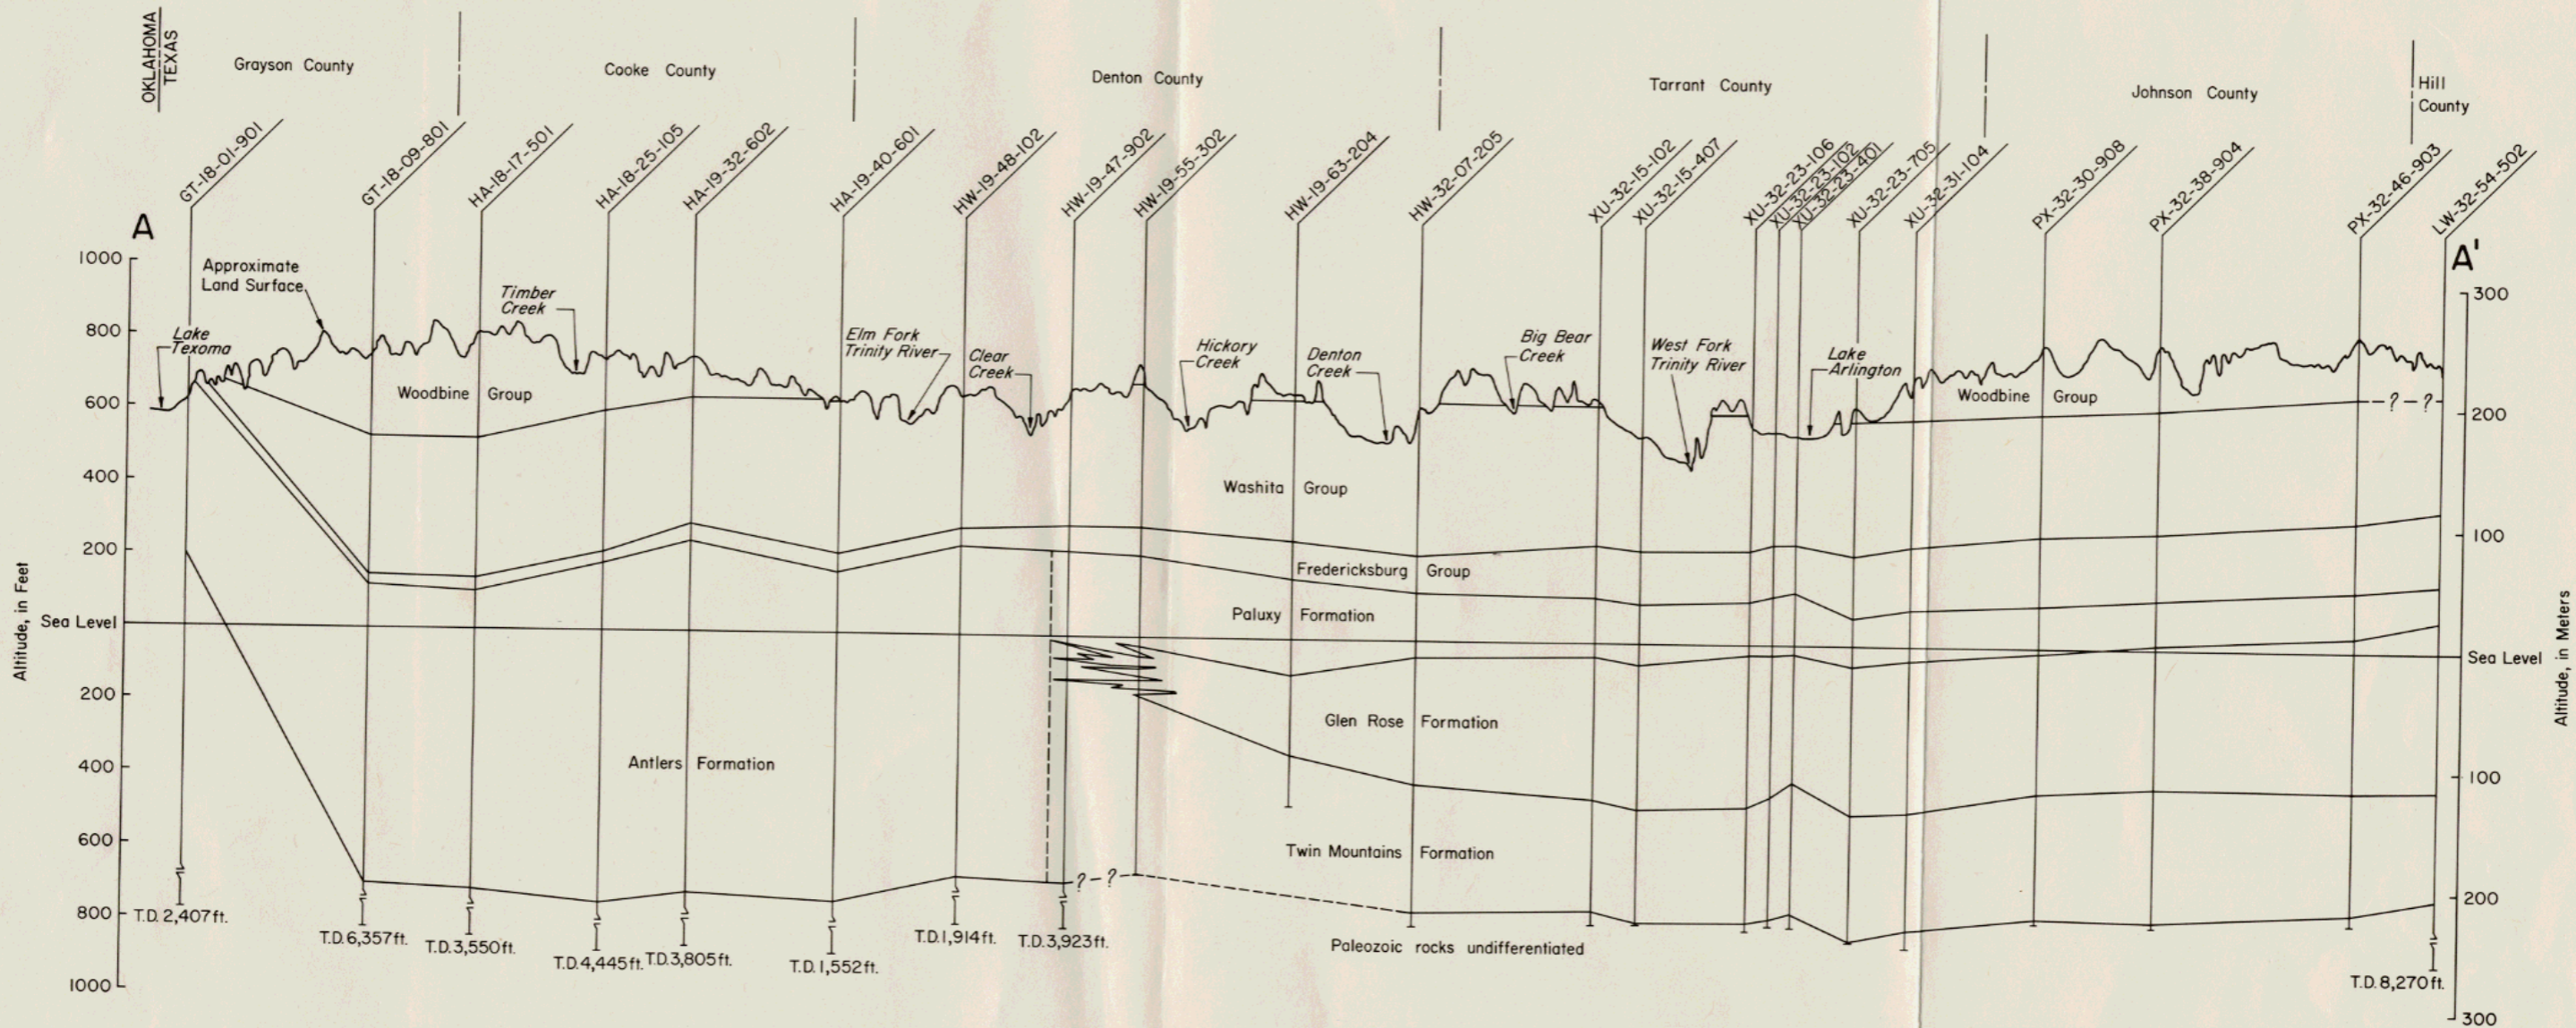 OKLAHOMA
TEXAS
Grayson County
Cooke County
Denton County
Tarrant County
Johnson County
Hill
County
GT-18-01-901
GT-18-09-801
HA-18-17-501
HA-18-25-105
HA-19-32-602
HA-19-40-601
HW-19-48-102
HW-19-47-902
HW-19-55-302
HW-19-63-204
HW-32-07-205
XU-32-15-102
XU-32-15-407
XU-32-23-106
XU-32-23-102
XU-32-23-401
XU-32-23-705
XU-32-31-104
PX-32-30-908
PX-32-38-904
PX-32-46-903
LW-32-54-502
A
A'
1000
800
600
400
200
Sea Level
200
400
600
800
1000
Altitude, in Feet
Approximate
Land Surface
Lake
Texoma
Timber
Creek
Elm Fork
Trinity River
Clear
Creek
Hickory
Creek
Denton
Creek
Big Bear
Creek
West Fork
Trinity River
Lake
Arlington
Woodbine Group
Woodbine Group
-?-?-
Washita Group
Fredericksburg Group
Paluxy Formation
Glen Rose Formation
Antlers Formation
Twin Mountains Formation
?-?-
Paleozoic rocks undifferentiated
T.D. 2,407ft.
T.D. 6,357ft.
T.D. 3,550ft.
T.D. 4,445ft.
T.D. 3,805ft.
T.D. 1,552ft.
T.D. 1,914ft.
T.D. 3,923ft.
T.D. 8,270ft.
300
200
100
Sea Level
100
200
300
Altitude, in Meters